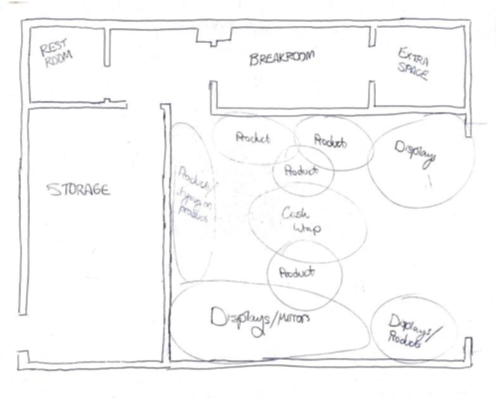 REST
ROOM
BREAKROOM
EXTRA
SPACE
Product
Product
Displays
Product
STORAGE
Product/
product
Cash
Wrap
Product
Displays/Mirrors
Displays/
Products